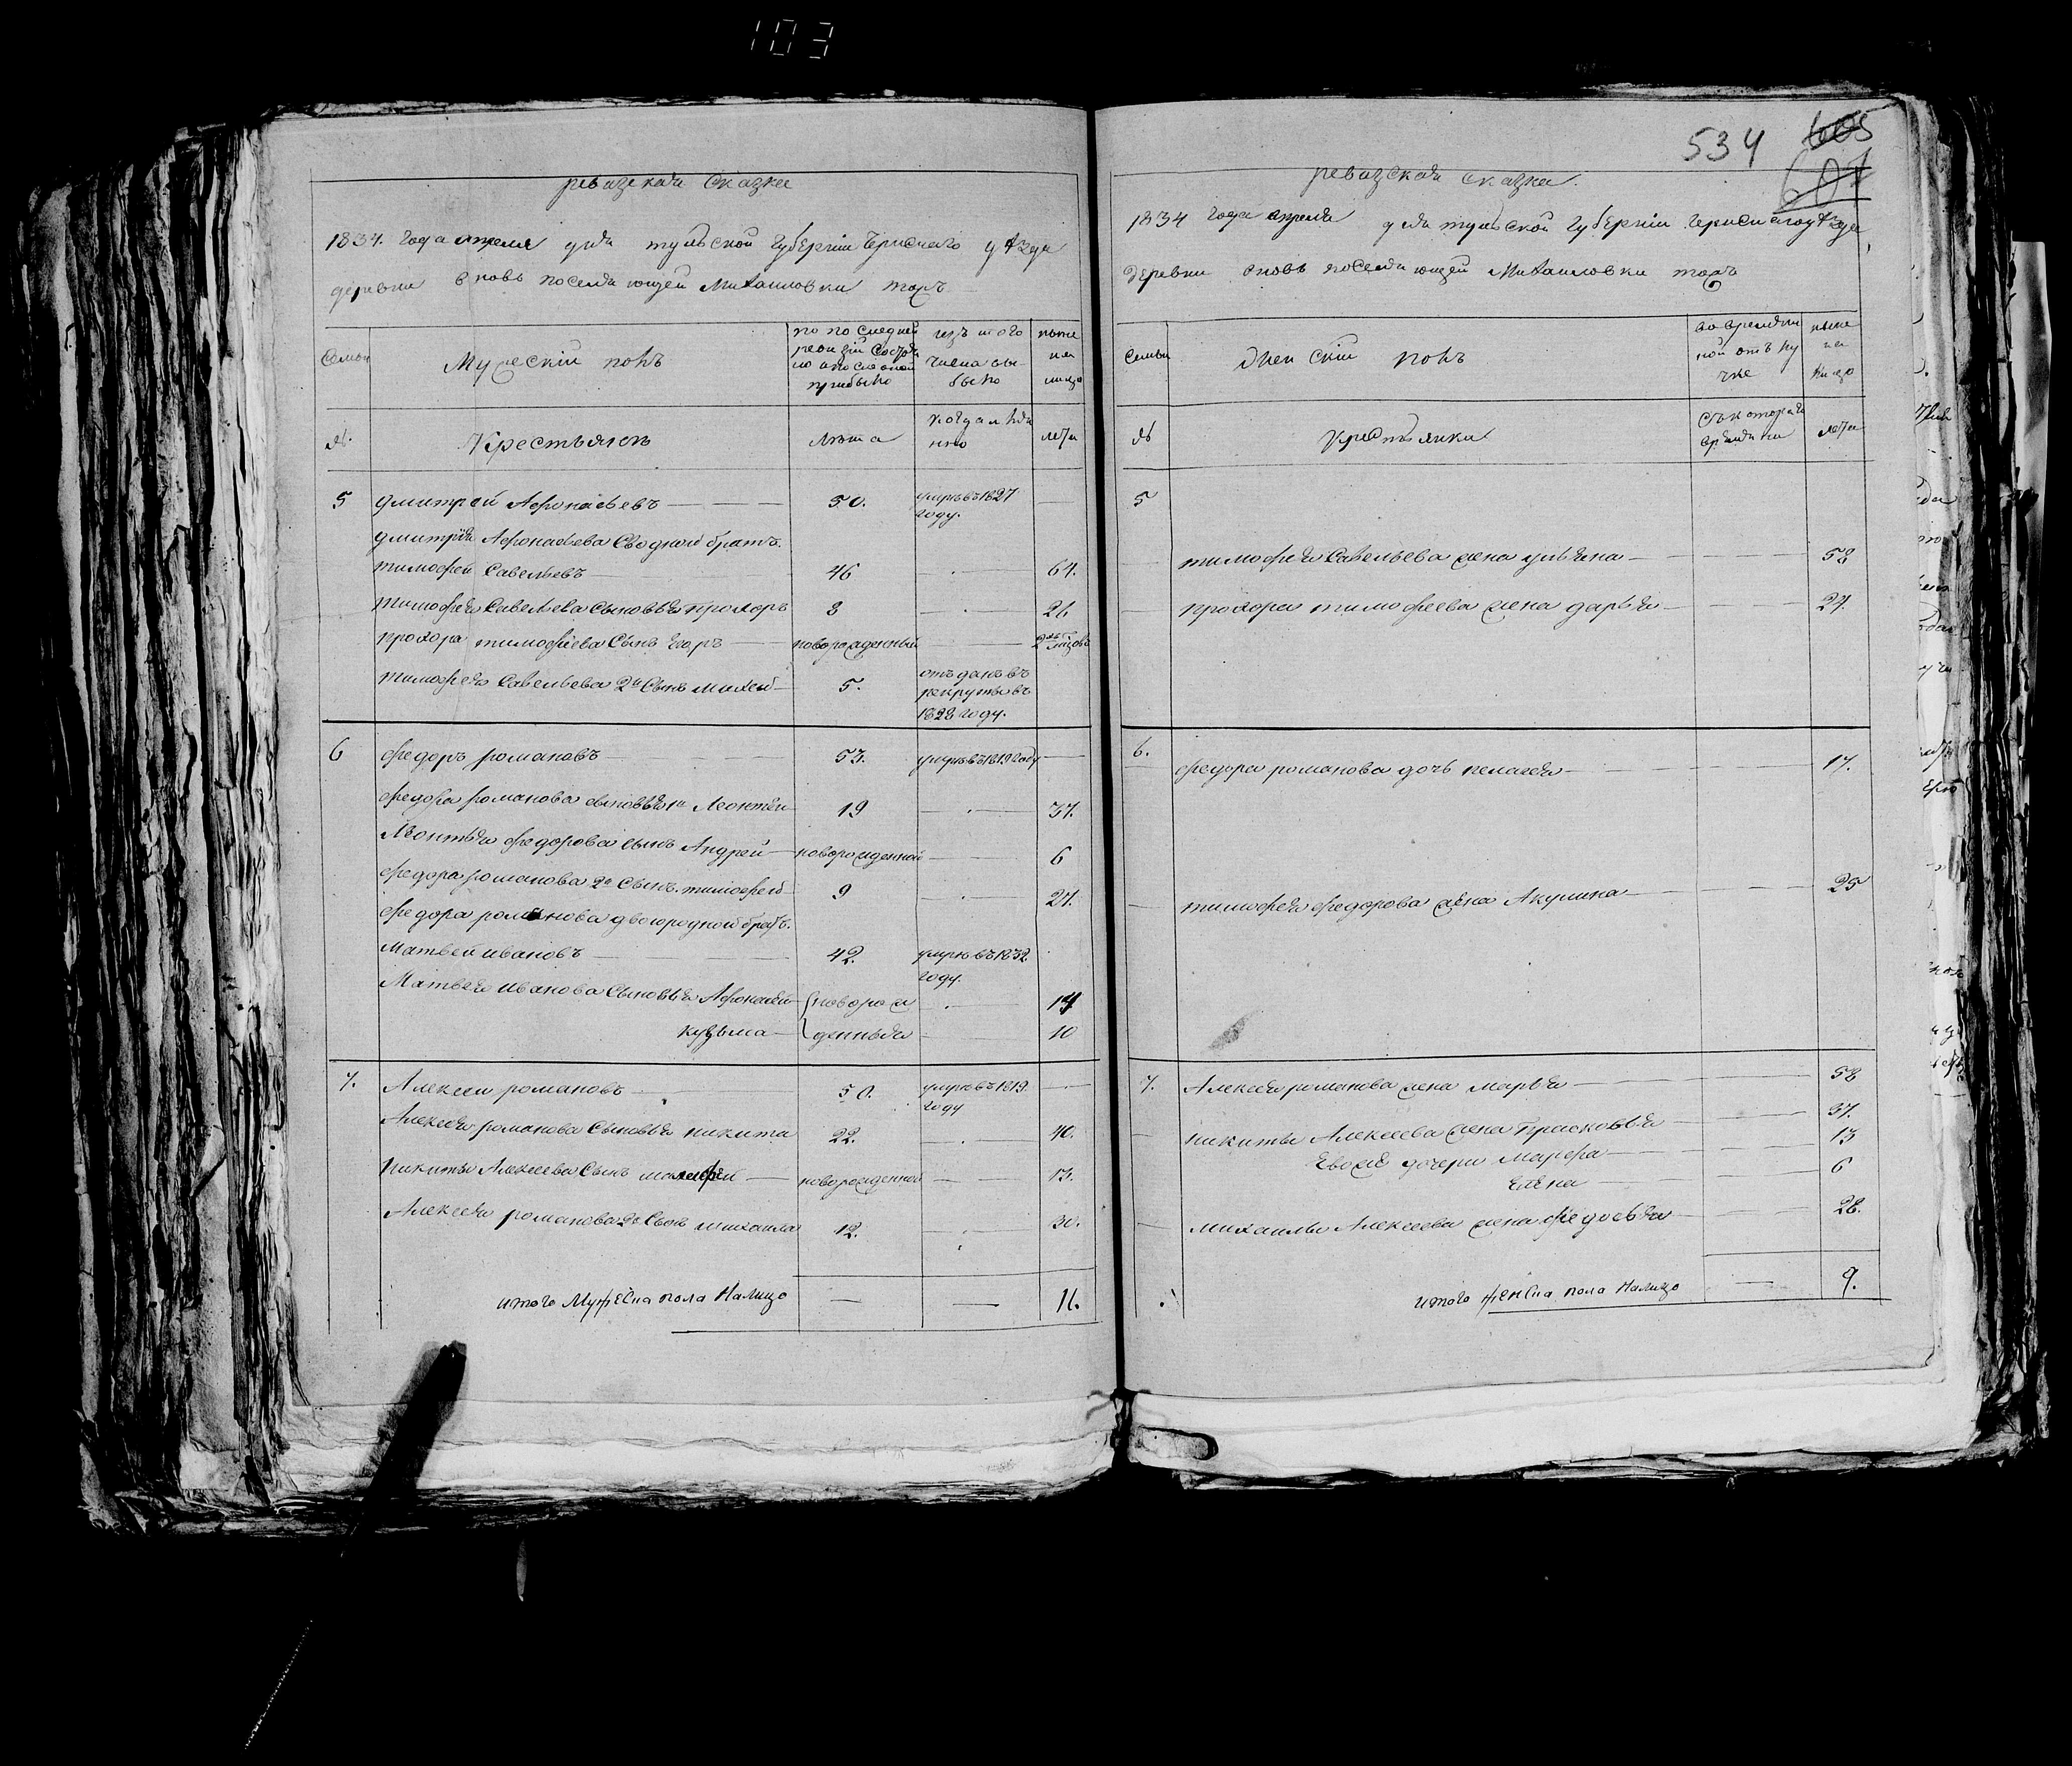 103
ревизская сказка
1834. года апреля дня тульской губернии Чернскаго уѣзда
деревни вновь поселяющей Михаиловки тожъ
Семьи
Мужескій полъ
по последней ревизіи состояло и после оной прибыло
изъ того числа выбыло
ныне на лицо
№.
Крестьянъ
лѣта
когда имянно
лета
5 дмитрей Афонасьевъ 50. умре въ 1827 году.
дмитрія Афонасьева сводной братъ.
тимофей Савельевъ 46 64.
тимофея Савельева сыновья прохоръ 8 26
прохора тимофеева сынъ Егоръ новорожденный 2
тимофея Савельева 2й сынъ михей 5. отъданъ въ рекруты въ 1828 году.
6 федоръ романовъ 53. умре въ 1819 году
федора романова сыновья 1й Леонтей 19 37.
Леонтья федорова сынъ Андрей новорожденной 6
федора романова 2й сынъ. тимофей 9 27.
федора романова двоюродной братъ.
Матвей ивановъ 42. умре въ 1832 году.
Матвея иванова сыновья Афонасей новорож 14
кузьма денныя 10
7. Алексеи романовъ 50. умре въ 1819 году
Алексея романова сыновья никита 22. 40.
Никиты Алексеева сынъ новорожденной 13.
Алексея романова 2й сынъ михаила 12. 30.
итого Мужеска пола Налицо 11.
534 605
607
ревизская сказка.
1834 года апреля дня тульской губерніи Чернскаго уѣзда
деревни вновь поселяющей Михаиловки тожъ
Семьи
женскій полъ
во временной отълучке
ныне на лицо
№
крестьянки
съ котораго времяни
лета
5
тимофея Савельева жена ульяна 58
прохора тимофеева жена дарья 27.
6.
федора романова дочь пелагея 17.
тимофея федорова жена Акулина 25
7. Алексея романова жена марья 58
никиты Алексеева жена Прасковья 37.
Евоже дочери Марфа 13
Елена 6
михаилы Алексеева жена федосья 28.
итого женска пола Налицо 9.